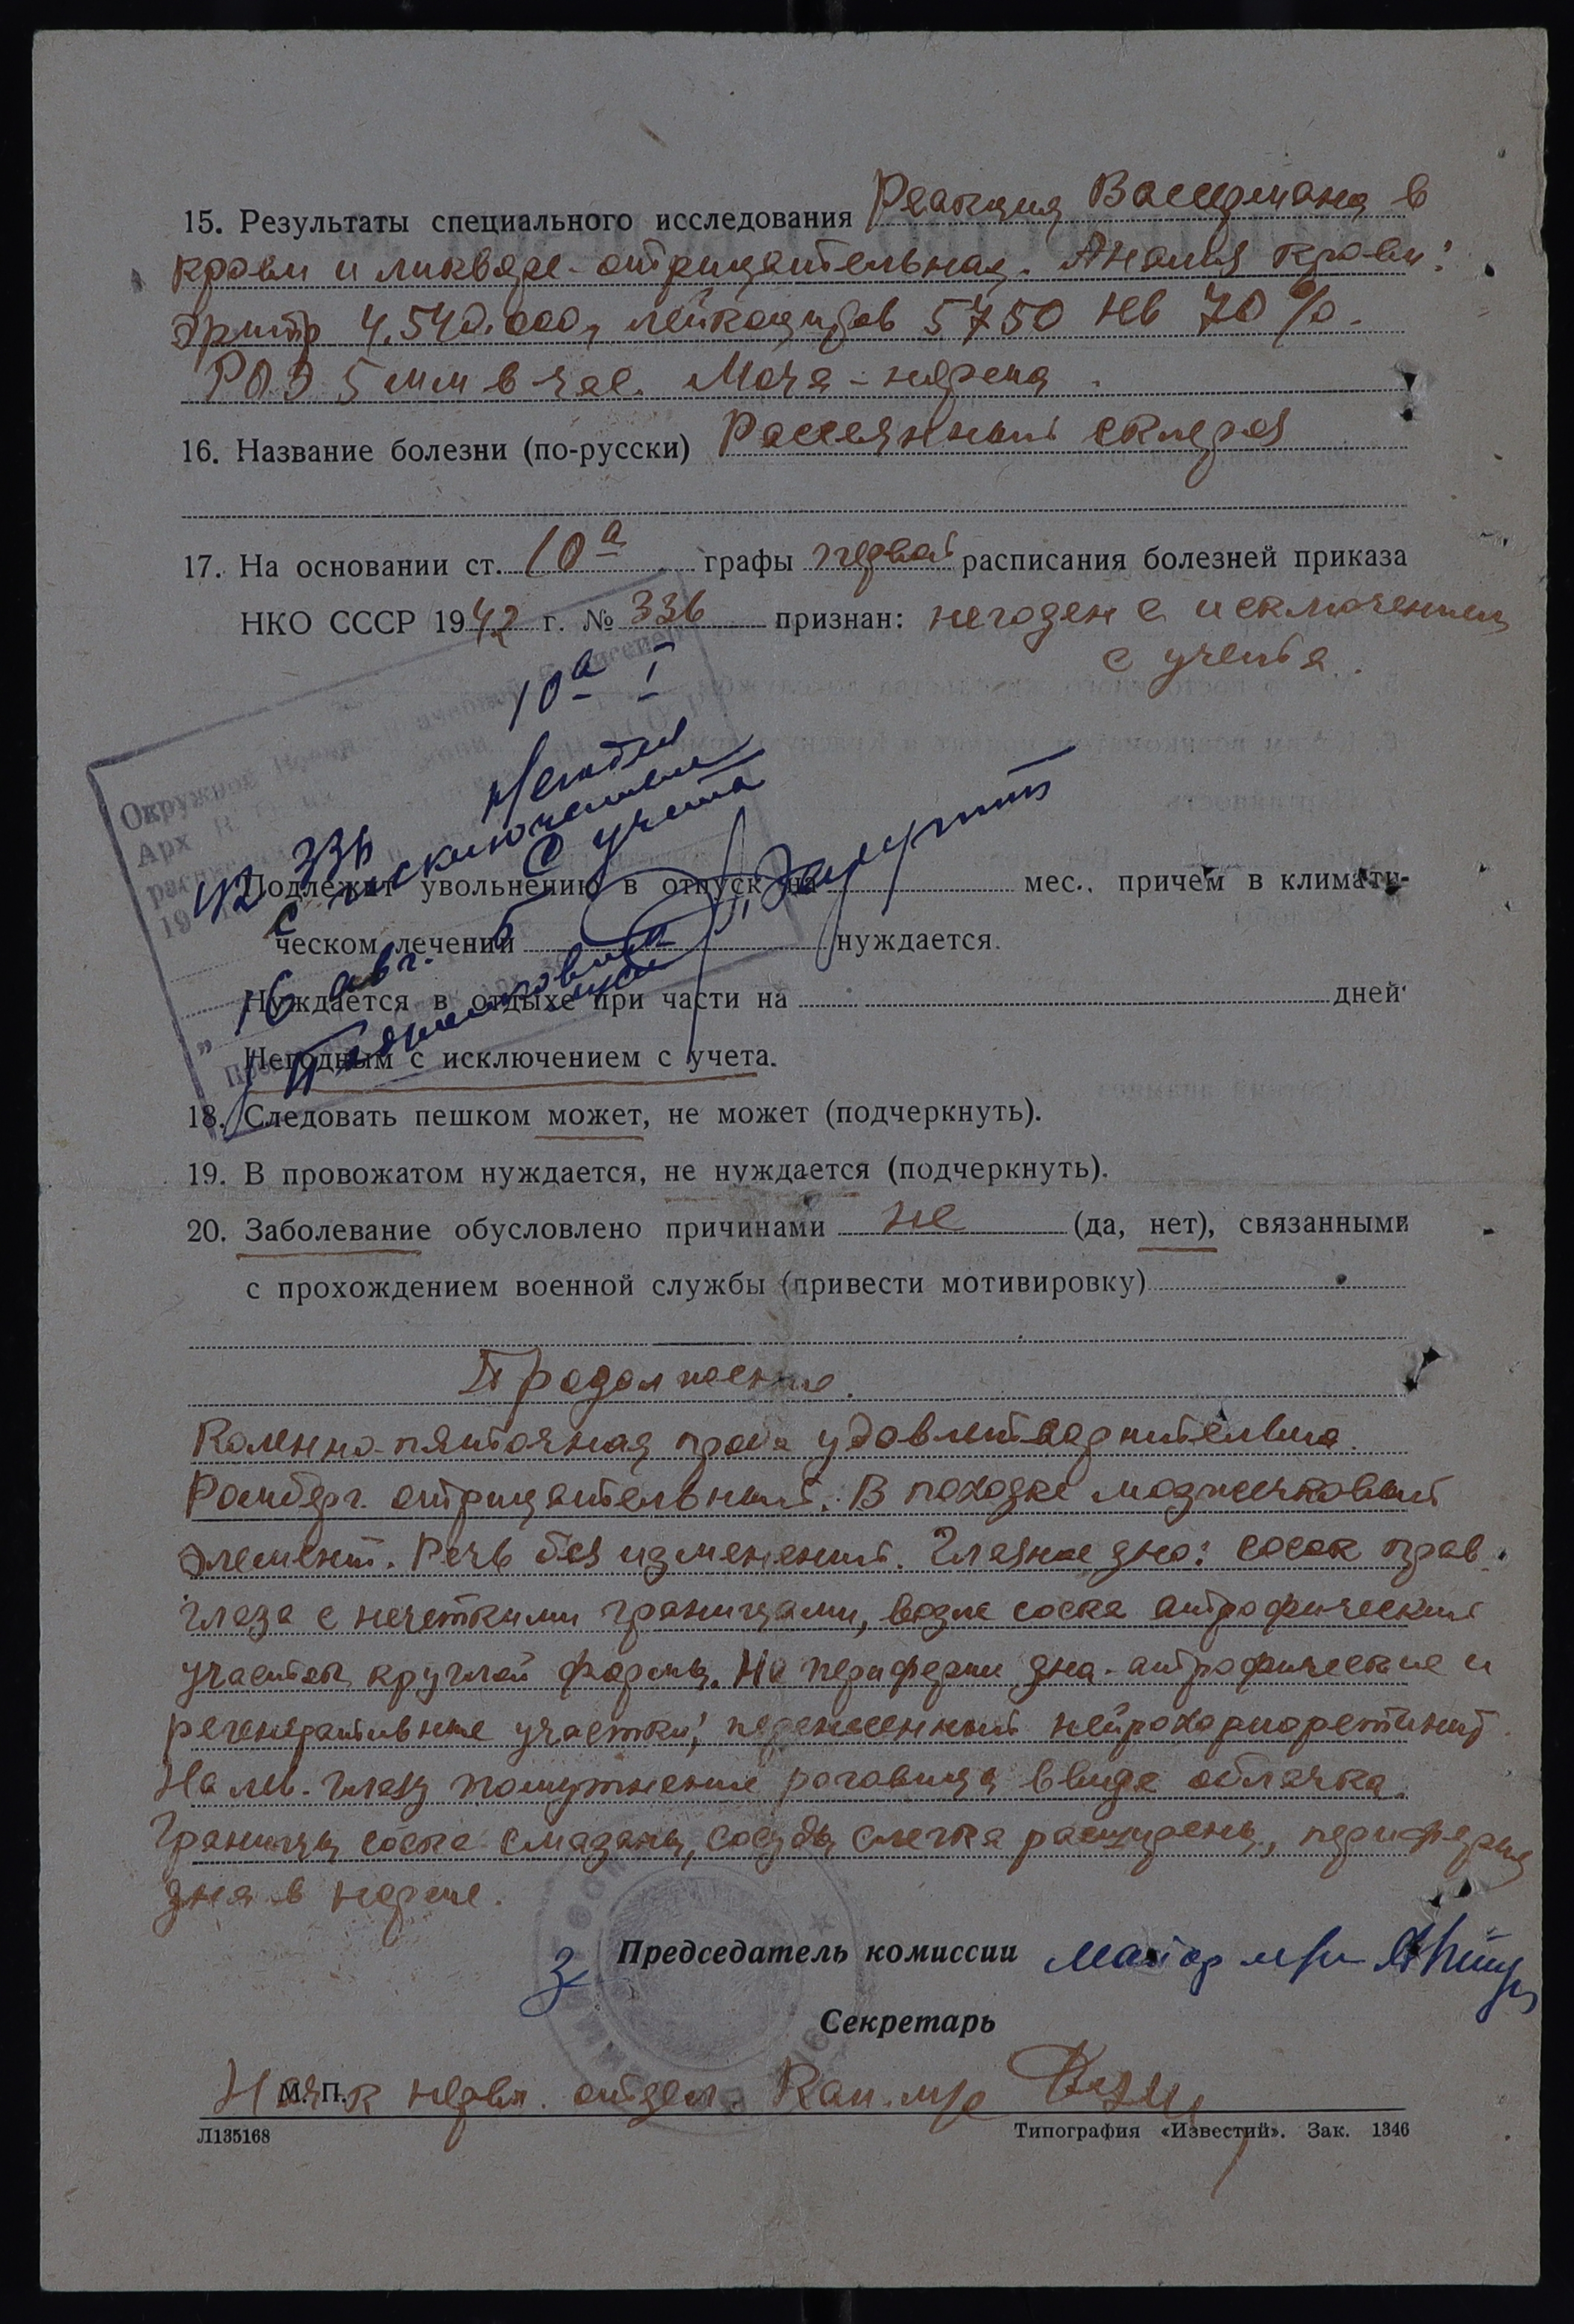 15. Результаты специального исследования Реакция Вассермана в
крови и ликворе - отрицательная. Анализ крови:
Эритр 4.540.000, лейкоцитов 5750 Нв 70%.
РОЭ 5 мм в час. Моча - норма.
16. Название болезни (по-русски) Рассеянный склероз
17. На основании ст. 10а графы первой расписания болезней приказа
НКО СССР 1942 г. № 336 признан: негоден с исключением
с учета.
10а I
Негоден
с исключением
с учета
Окружная
Арх
42 336
19
Подлежит увольнению в отпуск на мес., причем в климати-
ческом лечении нуждается.
16 авг.
Нуждается в отдыхе при части на дней
Негодным с исключением с учета.
18. Следовать пешком может, не может (подчеркнуть).
19. В провожатом нуждается, не нуждается (подчеркнуть).
20. Заболевание обусловлено причинами не (да, нет), связанными
с прохождением военной службы (привести мотивировку)
Продолжение.
Коленно-пяточная проба удовлетворительна.
Ромберг отрицательный. В походке мозжечковый
элемент. Речь без изменений. Глазное дно: сосок прав.
глаза с нечеткими границами, возле соска атрофический
участок круглой формы. На периферии дна - атрофические и
регенеративные участки; перенесенный нейрохориоретинит.
На лев. глазу помутнение роговицы в виде облачка.
Границы соска смазаны, сосуды слегка расширены, периферия
дна в норме.
З Председатель комиссии майор м/с
Секретарь
М. П.
Нач-к нервн. отдел. Кап. м/с
Л135168 Типография «Известий». Зак. 1346